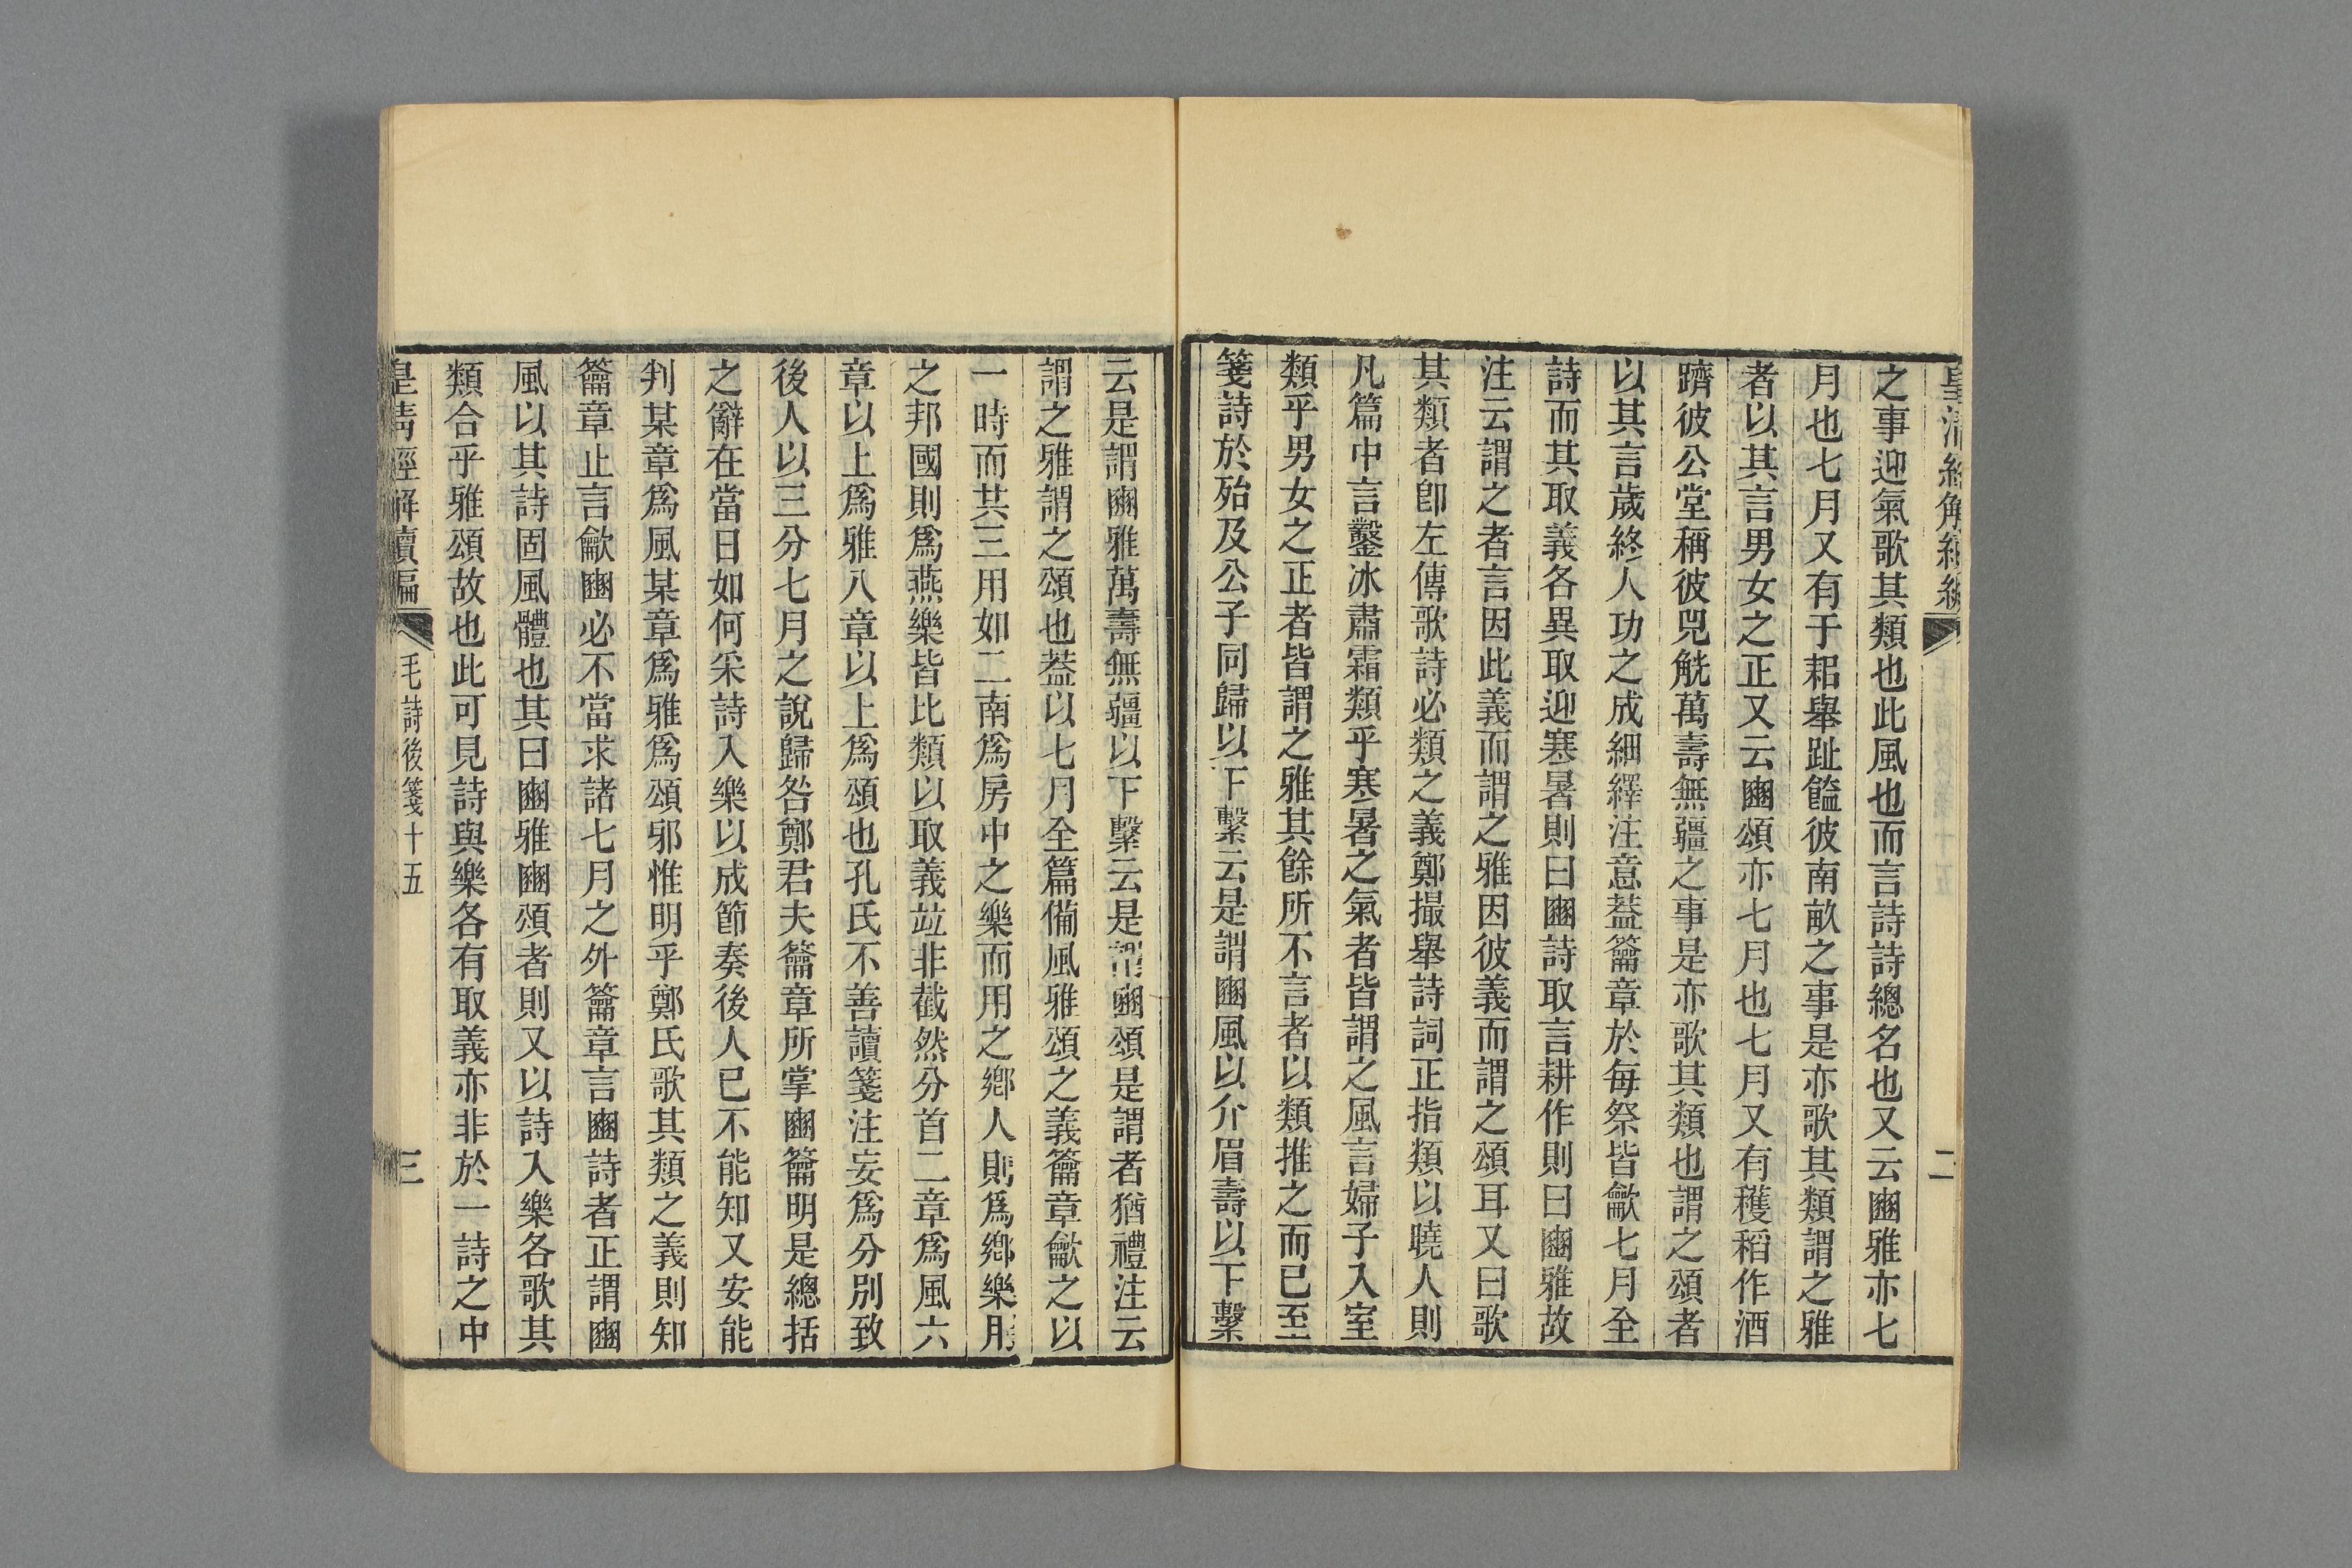 之事迎氣歌其類也此風也而言詩詩總名也又云豳雅亦七
月也七月又有于耜舉趾饁彼南畝之事是亦歌其類謂之雅
者以其言男女之正又云豳頌亦七月也七月又有穫稻作酒
躋彼公堂稱彼兕觥萬壽無疆之事是亦歌其類也謂之頌者
以其言歲終人功之成細繹注意葢籥章於每祭皆龡七月全
詩而其取義各異取迎寒暑則曰豳詩取言耕作則曰豳雅故
注云謂之者言因此義而謂之雅因彼義而謂之頌耳又曰歌
其類者卽左傳歌詩必類之義鄭撮舉詩詞正指類以曉人則
凡篇中言鑿冰肅霜類乎寒暑之氣者皆謂之風言婦子入室
類乎男女之正者皆謂之雅其餘所不言者以類推之而已至
箋詩於殆及公子同歸以下繫云是謂豳風以介眉壽以下繫
二
云是謂豳雅萬壽無疆以下繫云是謂豳頌是謂者猶禮注云
謂之雅謂之頌也葢以七月全篇備風雅頌之義籥章龡之以
一時而共三用如二南爲房中之樂而用之鄉人則爲鄉樂用
之邦國則爲燕樂皆比類以取義竝非截然分首二章爲風六
章以上爲雅八章以上爲頌也孔氏不善讀箋注妄爲分別致
後人以三分七月之說歸咎鄭君夫籥章所掌豳籥明是總括
之辭在當日如何采詩入樂以成節奏後人已不能知又安能
判某章爲風某章爲雅爲頌邪惟明乎鄭氏歌其類之義則知
籥章止言龡豳必不當求諸七月之外籥章言豳詩者正謂豳
風以其詩固風體也其曰豳雅豳頌者則又以詩入樂各歌其
類合乎雅頌故也此可見詩與樂各有取義亦非於一詩之中
皇清經解續編 毛詩後箋十五 三